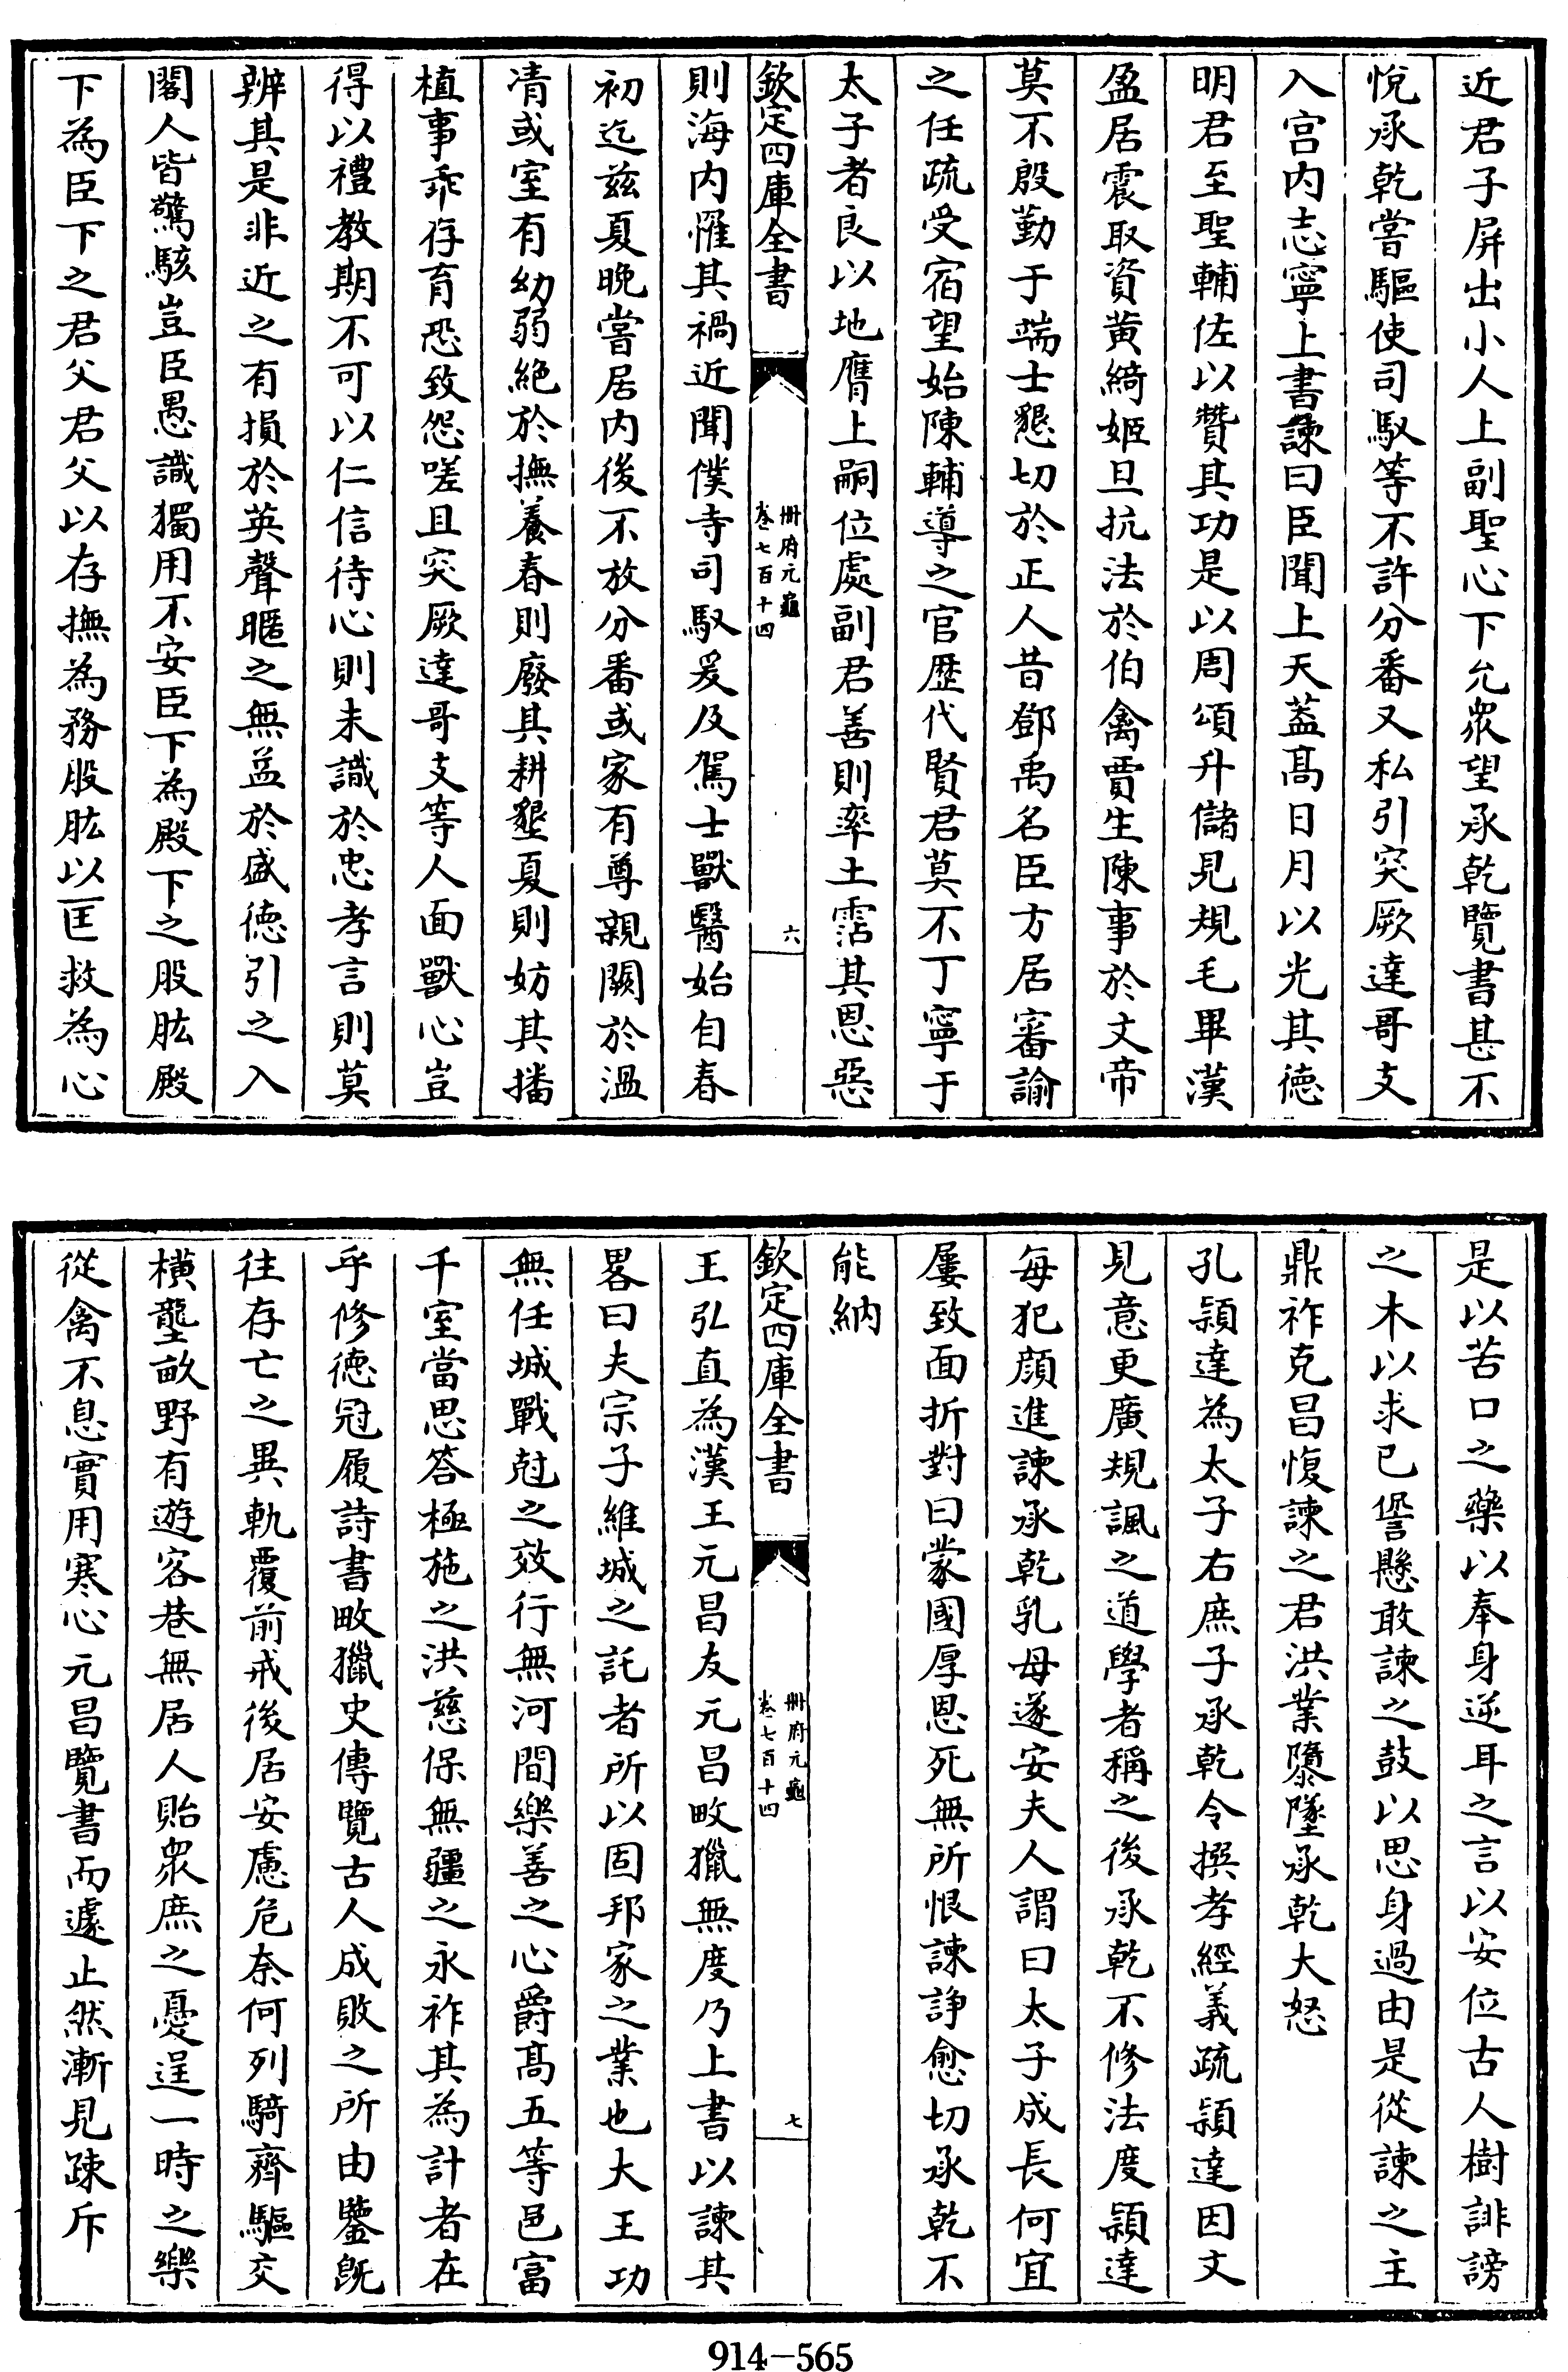 近君子屏出小人上副聖心下允衆望承乾覽書甚不
悅承乾嘗驅使司馭等不許分番又私引突厥達哥支
入宫内志寧上書諫曰臣聞上天蓋髙日月以光其徳
明君至聖輔佐以贊其功是以周頌升儲見規毛畢漢
盈居震取資黄綺姬旦抗法於伯禽賈生陳事於文帝
莫不殷勤于端士懇切於正人昔鄧禹名臣方居審諭
之任疏受宿望始陳輔導之官歴代賢君莫不丁寧于
太子者良以地膺上嗣位處副君善則率土霑其恩惡
欽定四庫全書
冊府元龜
卷七百十四
六
則海内惟其禍近聞僕寺司馭爰及駕士獸醫始自春
初迄兹夏晚嘗居内後不放分番或家有尊親闕於温
凊或室有幼弱絶於撫養春則廢其耕墾夏則妨其播
植事乖存育恐致怨嗟且突厥達哥支等人面獸心豈
得以禮教期不可以仁信待心則未識於忠孝言則莫
辨其是非近之有損於英聲暱之無益於盛徳引之入
閣人皆驚駭豈臣愚識獨用不安臣下為殿下之股肱殿
下為臣下之君父君父以存撫為務股肱以匡救為心
是以苦口之藥以奉身逆耳之言以安位古人樹誹謗
之木以求已愆懸敢諫之鼓以思身過由是從諫之主
鼎祚克昌愎諫之君洪業隳墜承乾大怒
孔頴達為太子右庶子承乾令撰孝經義疏頴達因文
見意更廣規諷之道學者稱之後承乾不修法度頴達
每犯顔進諫承乾乳母遂安夫人謂曰太子成長何宜
屢致面折對曰蒙國厚恩死無所恨諫諍愈切承乾不
能納
欽定四庫全書
冊府元龜
卷七百十四
七
王弘直為漢王元昌友元昌畋獵無度乃上書以諫其
畧曰夫宗子維城之託者所以固邦家之業也大王功
無任城戰尅之效行無河間樂善之心爵髙五等邑富
千室當思答極施之洪慈保無疆之永祚其為計者在
乎修徳冠履詩書畋獵史傳覽古人成敗之所由鑒旣
往存亡之異軌覆前戒後居安慮危奈何列騎齊驅交
横壟畝野有遊客巷無居人貽衆庶之憂逞一時之樂
從禽不息實用寒心元昌覽書而遽止然漸見疎斥
914-565